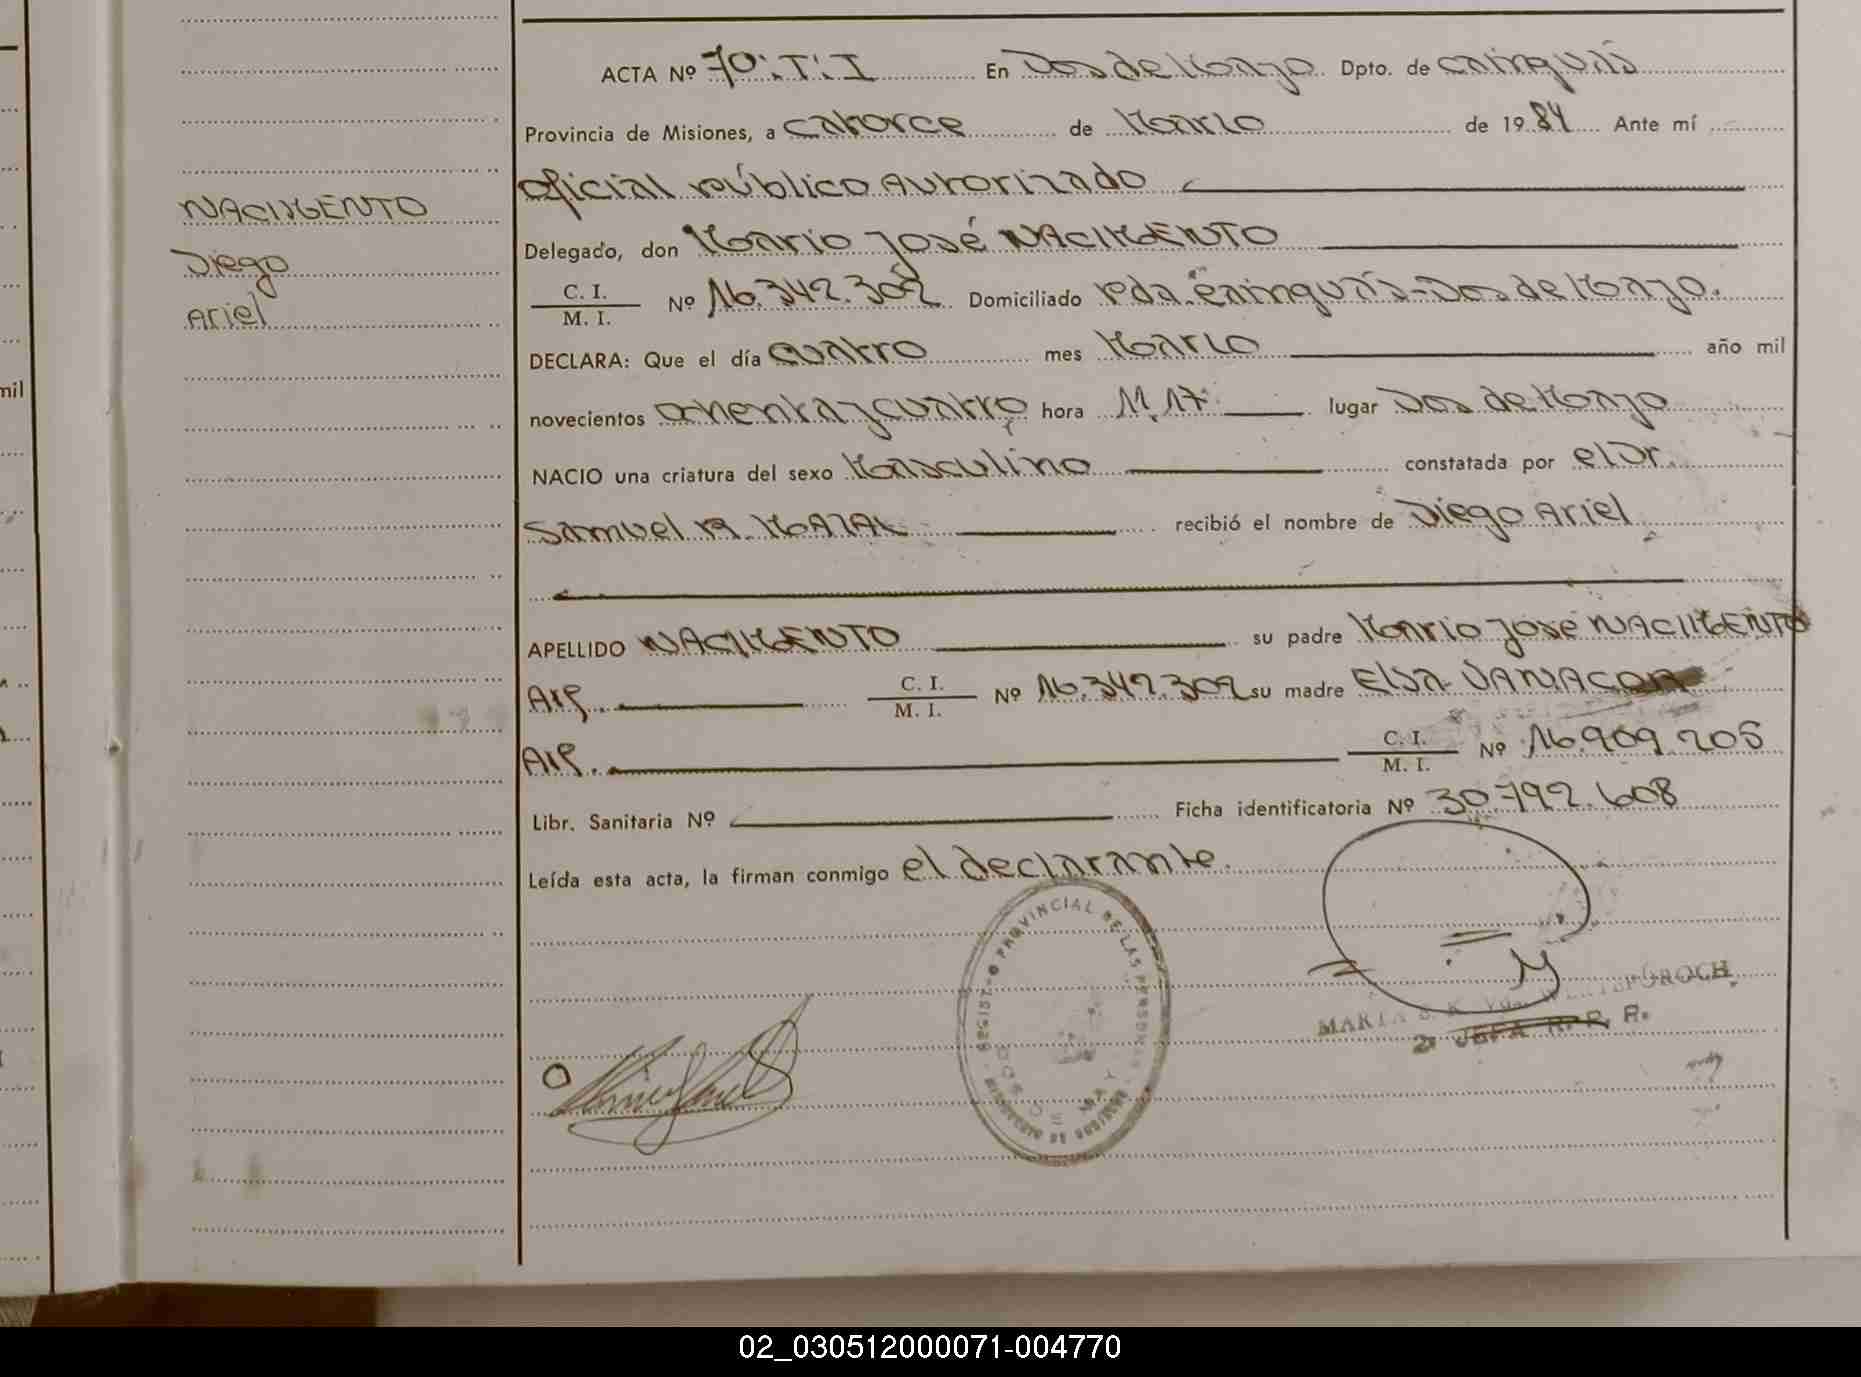 ACTA Nº 70: T: I En Dos de Mayo Dpto. de Cainguás
Provincia de Misiones, a catorce de Marzo de 1984 Ante mí
oficial público Autorizado
NACIMENTO
Delegado, don Mario José NACIMENTO
Diego
C. I.
M. I. Nº 16.342.302 Domiciliado Pda. Cainguás-Dos de Mayo.
Ariel
DECLARA: Que el día cuatro mes Marzo año mil
mil
novecientos ochenta y cuatro hora 11.17 lugar Dos de Mayo
NACIO una criatura del sexo Masculino constatada por el Dr.
Samuel A. MAZAL recibió el nombre de Diego Ariel
APELLIDO NACIMENTO su padre Mario José NACIMENTO
Arg. C. I.
M. I. Nº 16.342.302 su madre Elsa
Arg. C. I.
M. I. Nº 16.909.205
Libr. Sanitaria Nº Ficha identificatoria Nº 30.792.608
Leída esta acta, la firman conmigo el declarante.
REGISTRO PROVINCIAL DE LAS PERSONAS
DOS DE MAYO
MARIA
JEFA R. P. P.
02_030512000071-004770